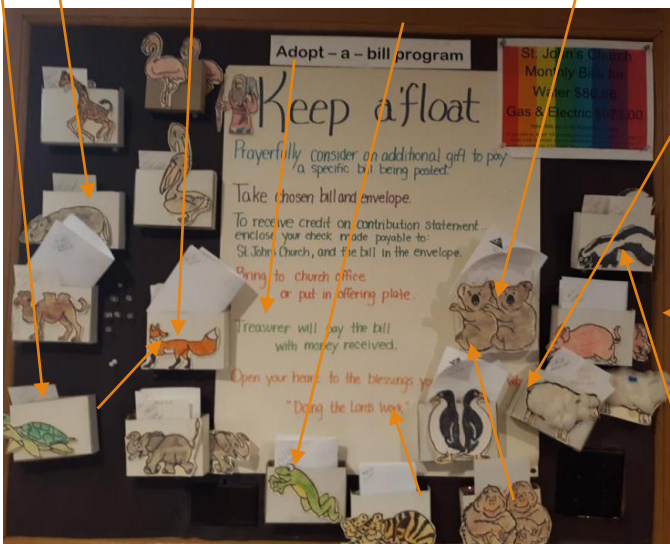 Adopt – a – bill program
St. John's Church
Monthly Bills for
Water $86.66
Gas & Electric $973.00
Keep a'float
Prayerfully consider an additional gift to pay
a specific bill being posted.
Take chosen bill and envelope.
To receive credit on contribution statement...
enclose your check made payable to:
St. John Church, and the bill in the envelope.
Bring to church office
or put in offering plate.
Treasurer will pay the bill
with money received.
Open your heart to the blessings
"Doing the Lords Work"